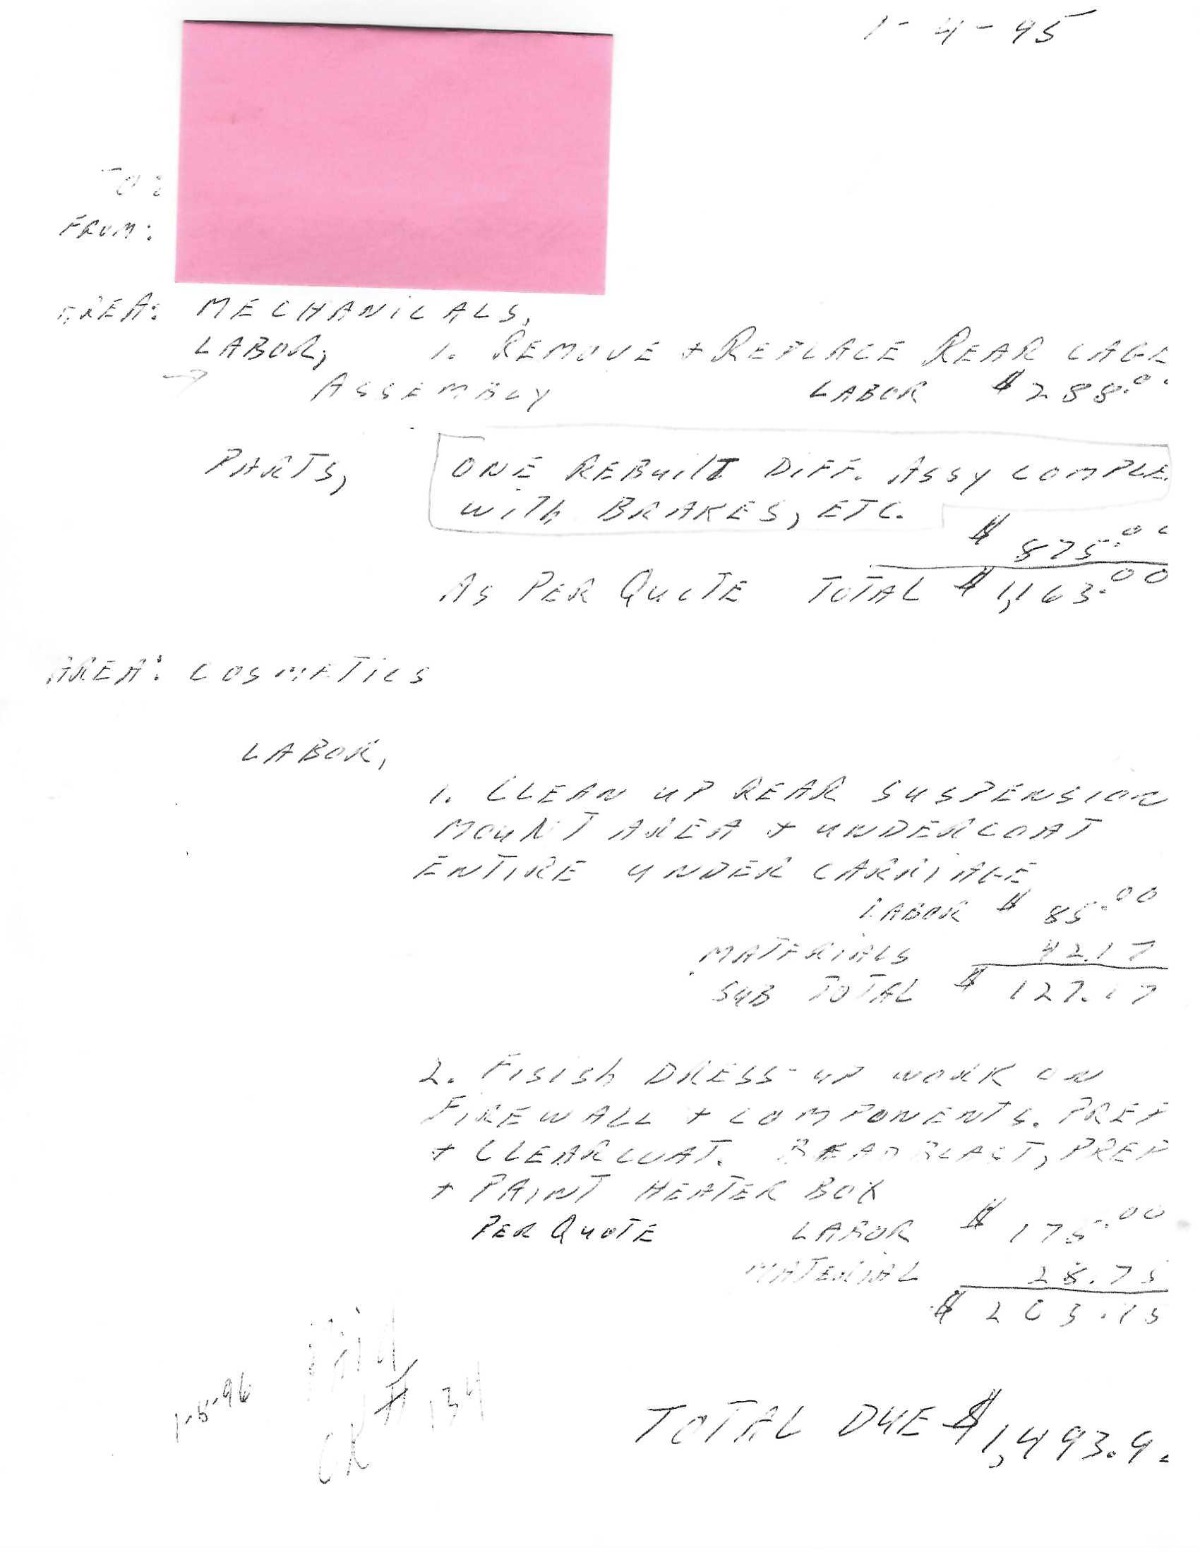 1-4-95
TO:
FROM:
AREA: MECHANICALS,
LABOR, 1. REMOVE + REPLACE REAR CAGE
ASSEMBLY LABOR $288.00
PARTS, ONE REBUILT DIFF. ASSY COMPLE
with BRAKES, ETC.
$ 875.00
AS PER QUOTE TOTAL $1,163.00
AREA: COSMETICS
LABOR,
1. CLEAN UP REAR SUSPENSION
MOUNT AREA + UNDERCOAT
ENTIRE UNDER CARRIAGE
LABOR $ 85.00
MATERIALS 42.17
SUB TOTAL $ 127.17
2. FISISh DRESS-UP WORK ON
FIREWALL + COMPONENTS. PREP
+ CLEARCOAT. BEADBLAST, PREP
+ PAINT HEATER BOX
PER QUOTE LABOR $ 175.00
MATERIAL 28.75
$ 203.75
1-5-96 Paid
CK # 134
TOTAL DUE $1,493.9